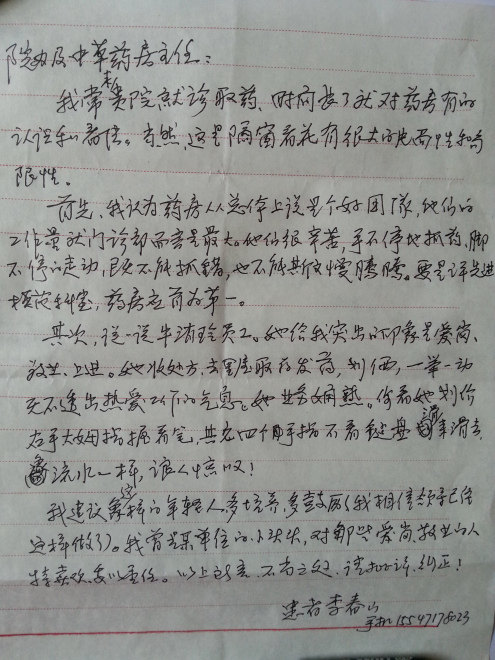 院办及中草药房主任：
我常来贵院就诊取药，时间长了就对药房有的
认识和看法。当然，这是隔窗看花有很大的片面性和局
限性。
首先，我认为药房从总体上说是个好团队，他们的
工作量就门诊部而言是最大。他们很辛苦，手不停地抓药，脚
不停的走动，既不能抓错，也不能斯文慢腾腾。要是评先进
科室，药房应首为第一。
其次，说一说牛清玲员工。她给我突出的印象是爱岗、
敬业、上进。她收处方、发药，划价，一举一动
无不透出热爱工作的气息。她业务娴熟。你看她划价
右手大姆指握着笔，其它四个手指不看键盘滑去，
流水一样，让人惊叹！
我建议象这样的年轻人多培养，多鼓励（我相信领导已经
这样做了）。我曾是某单位的小头头，对那些爱岗敬业的人
特喜欢委以重任。以上这意，不当之处，请批评、纠正！
患者李春山
手机15547178023